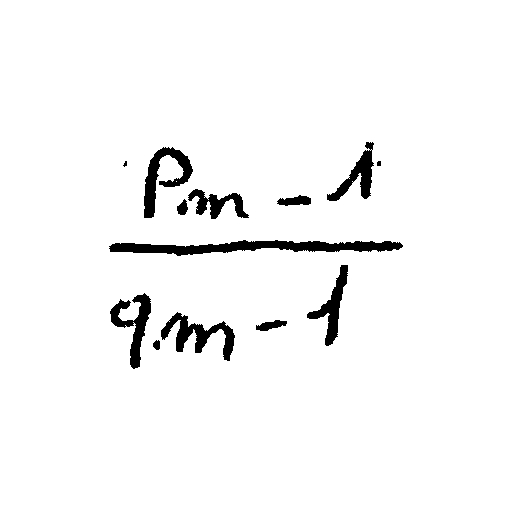 P.m - 1
q.m - 1